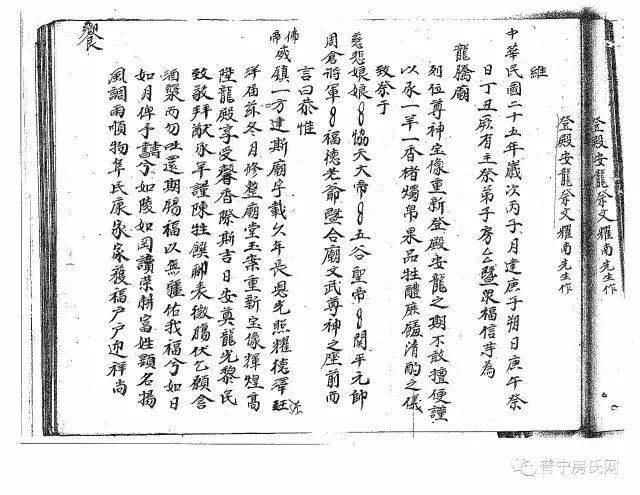 登殿安龍祭文耀南先生作
登殿安龍祭文耀南先生作
維
中華民國二十五年歲次丙子月建庚子朔日庚午祭
日丁丑辰有主祭弟子房厶暨衆福信等為
龍騰廟
列位尊神宝像重新登殿安龍之期不敢擅便謹
以豕一羊一香楮燭帛果品牲醴庶饈清酌之儀
致祭于
慈悲娘娘 協天大帝 五谷聖帝 関平元帥
周倉將軍 福德老爺暨合廟文武尊神之座前而
言曰恭惟
佛帝威鎮一方建斯廟宇載久年長恩光照耀德澤
洋茲冬月修整廟堂玉案重新宝像輝煌高
陞龍殿享受馨香際斯吉日安奠龍光黎民
致敬拜献豕羊謹陳牲饌聊表微腸伏乞顧含
酒槃而勿吐還期賜福以無疆佑我福兮如日
如月俾予壽兮如陵如岡讀榮耕富姓顯名揚
風調雨順物阜民康家家獲福户户迎祥尚
饗
普宁房氏网